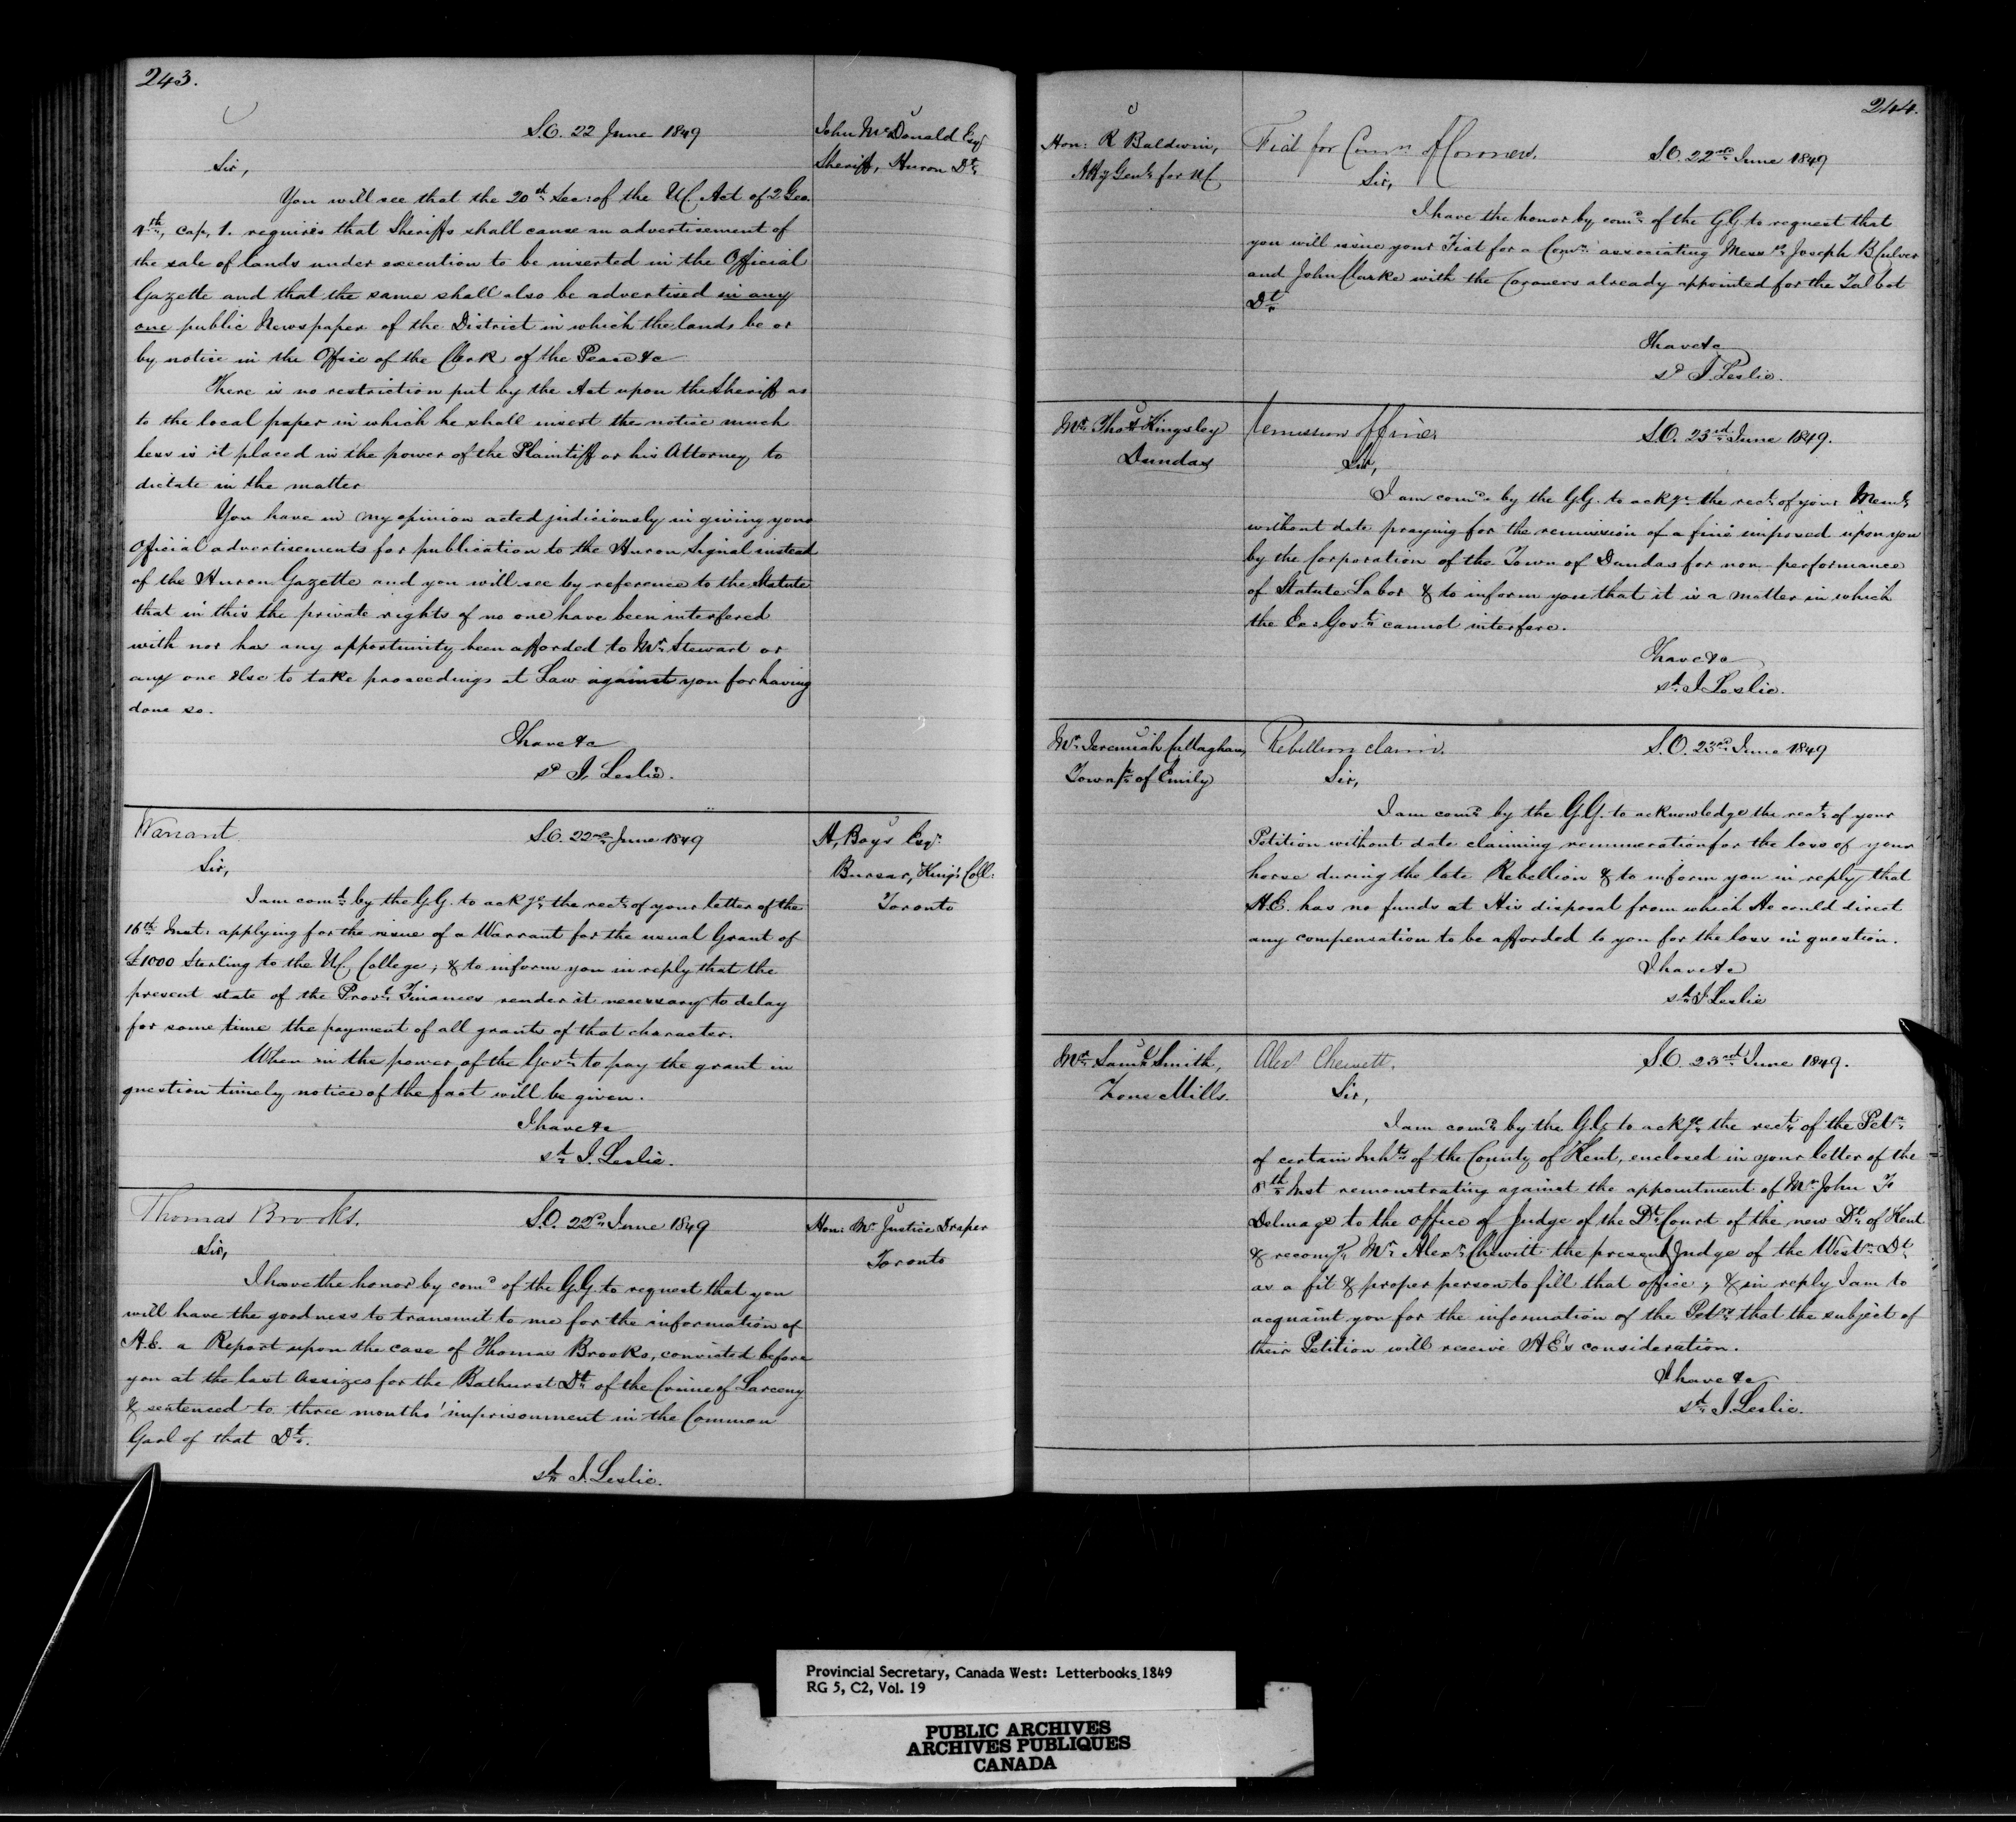 243.
S.O. 22 June 1849
John McDonald Esq
Sheriff, Huron Dt.
Sir,
You will see that the 20th Sec: of the U.C. Act of 2 Geo.
4th, cap, 1. requires that Sheriffs shall cause an advertisement of
the sale of lands under execution to be inserted in the Official
Gazette and that the same shall also be advertised in any
one public Newspaper of the District in which the lands be or
by notice in the Office of the Clerk of the Peace &c
There is no restriction put by the Act upon the Sheriff as
to the local paper in which he shall insert the notice much
less is it placed in the power of the Plaintiff or his Attorney to
dictate in the matter
You have in my opinion acted judiciously in giving your
Official advertisements for publication to the Huron Signal instead
of the Huron Gazette and you will see by reference to the Statute
that in this the private rights of no one have been interfered
with nor has any opportunity been afforded to Mr. Stewart or
any one else to take proceedings at Law against you for having
done so.
I have &c
sd J. Leslie.
Warrant
S.O. 22nd June 1849
H, Boys Esqr.
Bursar, King's Coll:
Toronto
Sir,
I am comd. by the G.G. to ackge. the rect. of your letter of the
16th Inst. applying for the issue of a Warrant for the usual Grant of
£1000 Sterling to the U.C. College; & to inform you in reply that the
present state of the Provl. Finances render it necessary to delay
for some time the payment of all grants of that character.
When in the power of the Govt. to pay the grant in
question timely notice of the fact will be given.
I have &c
sd. J. Leslie.
Thomas Brooks.
S.O. 22d. June 1849
Hon: Mr. Justice Draper
Toronto
Sir,
I have the honor by comd of the G.G. to request that you
will have the goodness to transmit to me for the information of
H.E. a Report upon the case of Thomas Brooks, convicted before
you at the last Assizes for the Bathurst Dt. of the Crime of Larceny
& sentenced to three months' imprisonment in the Common
Gaol of that Dt.
sd. J. Leslie.
244.
Hon: R Baldwin,
Atty Genl. for U.C.
Fiat for Comn. of Coroners.
S.O. 22nd June 1849
Sir,
I have the honor by comd. of the G.G. to request that
you will issue your Fiat for a Comn. associating Messrs. Joseph B. Culver
and John Clarke with the Coroners already appointed for the Talbot
Dt.
I have &c
sd J. Leslie.
Mr. Thos. Kingsley
Dundas
Remission of Fines
S.O. 23rd. June 1849.
Sir,
I am comd. by the G.G. to ackge. the rect. of your Meml.
without date praying for the remission of a fine imposed upon you
by the Corporation of the Town of Dundas for non-performance
of Statute Labor & to inform you that it is a matter in which
the Ex: Govt. cannot interfere.
I have &c
sd. J. Leslie.
Mr. Jeremiah Callaghan,
Townsp. of Emily
Rebellion claim.
S.O. 23rd. June 1849
Sir,
I am comd. by the G.G. to acknowledge the rect. of your
Petition without date claiming remuneration for the loss of your
horse during the late Rebellion & to inform you in reply that
H.E. has no funds at His disposal from which He could direct
any compensation to be afforded to you for the loss in question.
I have &c
sd. J. Leslie
Mr. Saml. Smith,
Zone Mills.
Alexr Chewett.
S.O. 23rd June 1849.
Sir,
I am comd. by the G.G. to ackge. the rect. of the Petn.
of certain Inhts. of the County of Kent, enclosed in your letter of the
8th. Inst remonstrating against the appointment of Mr. John F.
Delmage to the office of Judge of the Dt. Court of the new Dt. of Kent
& recomg. Mr. Alexr. Chewitt the present Judge of the Westn. Dt.
as a fit & proper person to fill that office; & in reply I am to
acquaint you for the information of the Petrs. that the subject of
their Petition will receive H.E's consideration.
I have &c
sd. J. Leslie.
Provincial Secretary, Canada West: Letterbooks 1849
RG 5, C2, Vol. 19
PUBLIC ARCHIVES
ARCHIVES PUBLIQUES
CANADA